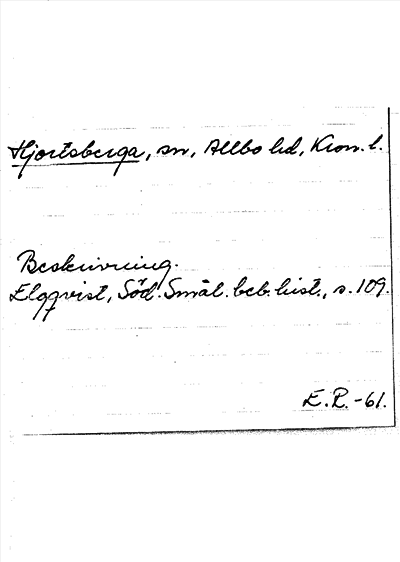 Hjortsberga, sn, Allbo hd, Kron. l.
Beskrivning.
Elgqvist, Söd. Smål. beb. hist., s. 109.
E.R.-61.